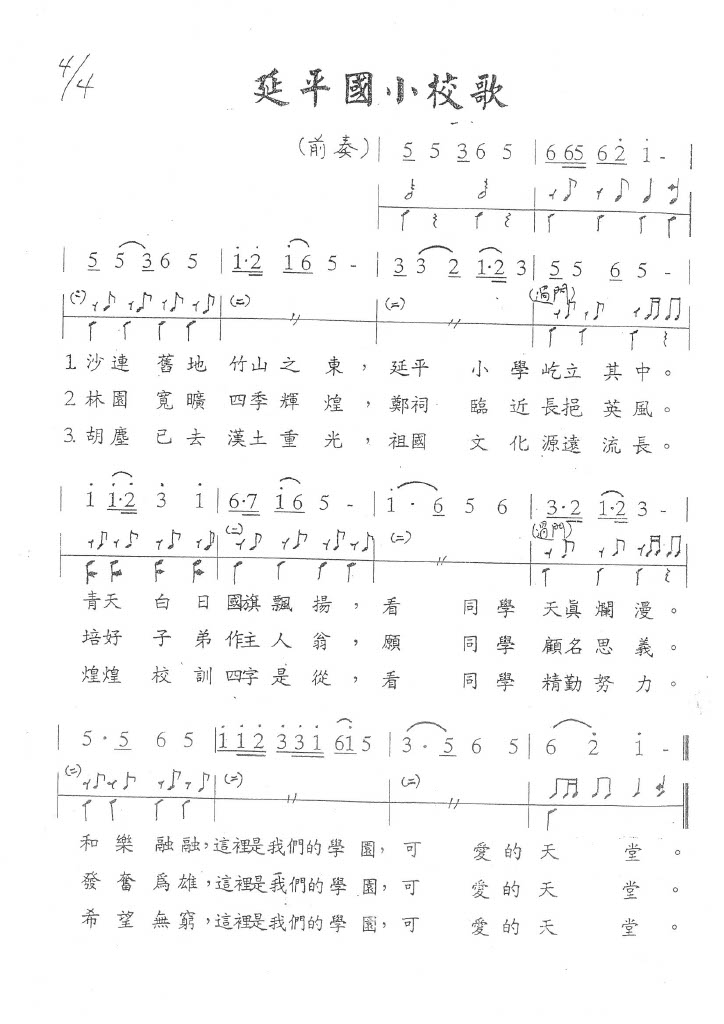 4/4
延平國小校歌
(前奏) | 5 5 3 6 5 | 6 6 5 6 2̇ 1̇ - |
| 5 5 3 6 5 | 1̇·2̇ 1̇ 6 5 - | 3 3 2 1̇·2̇ 3 | 5 5 6 5 - |
(二) (二) (過門)
1.沙連舊地竹山之東，延平小學屹立其中。
2.林園寬曠四季輝煌，鄭祠臨近長挹英風。
3.胡塵已去漢土重光，祖國文化源遠流長。
| 1̇ 1̇·2̇ 3̇ 1̇ | 6·7 1̇ 6 5 - | 1̇· 6 5 6 | 3·2 1·2 3 - |
(二) (二) (過門)
青天白日國旗飄揚，看同學天眞爛漫。
培好子弟作主人翁，願同學顧名思義。
煌煌校訓四字是從，看同學精勤努力。
| 5·5 6 5 | 1̇ 1̇ 2̇ 3̇ 3̇ 1̇ 6 1̇ 5 | 3·5 6 5 | 6 2̇ 1̇ - ‖
(二) (二) (二)
和樂融融，這裡是我們的學園，可愛的天堂。
發奮爲雄，這裡是我們的學園，可愛的天堂。
希望無窮，這裡是我們的學園，可愛的天堂。